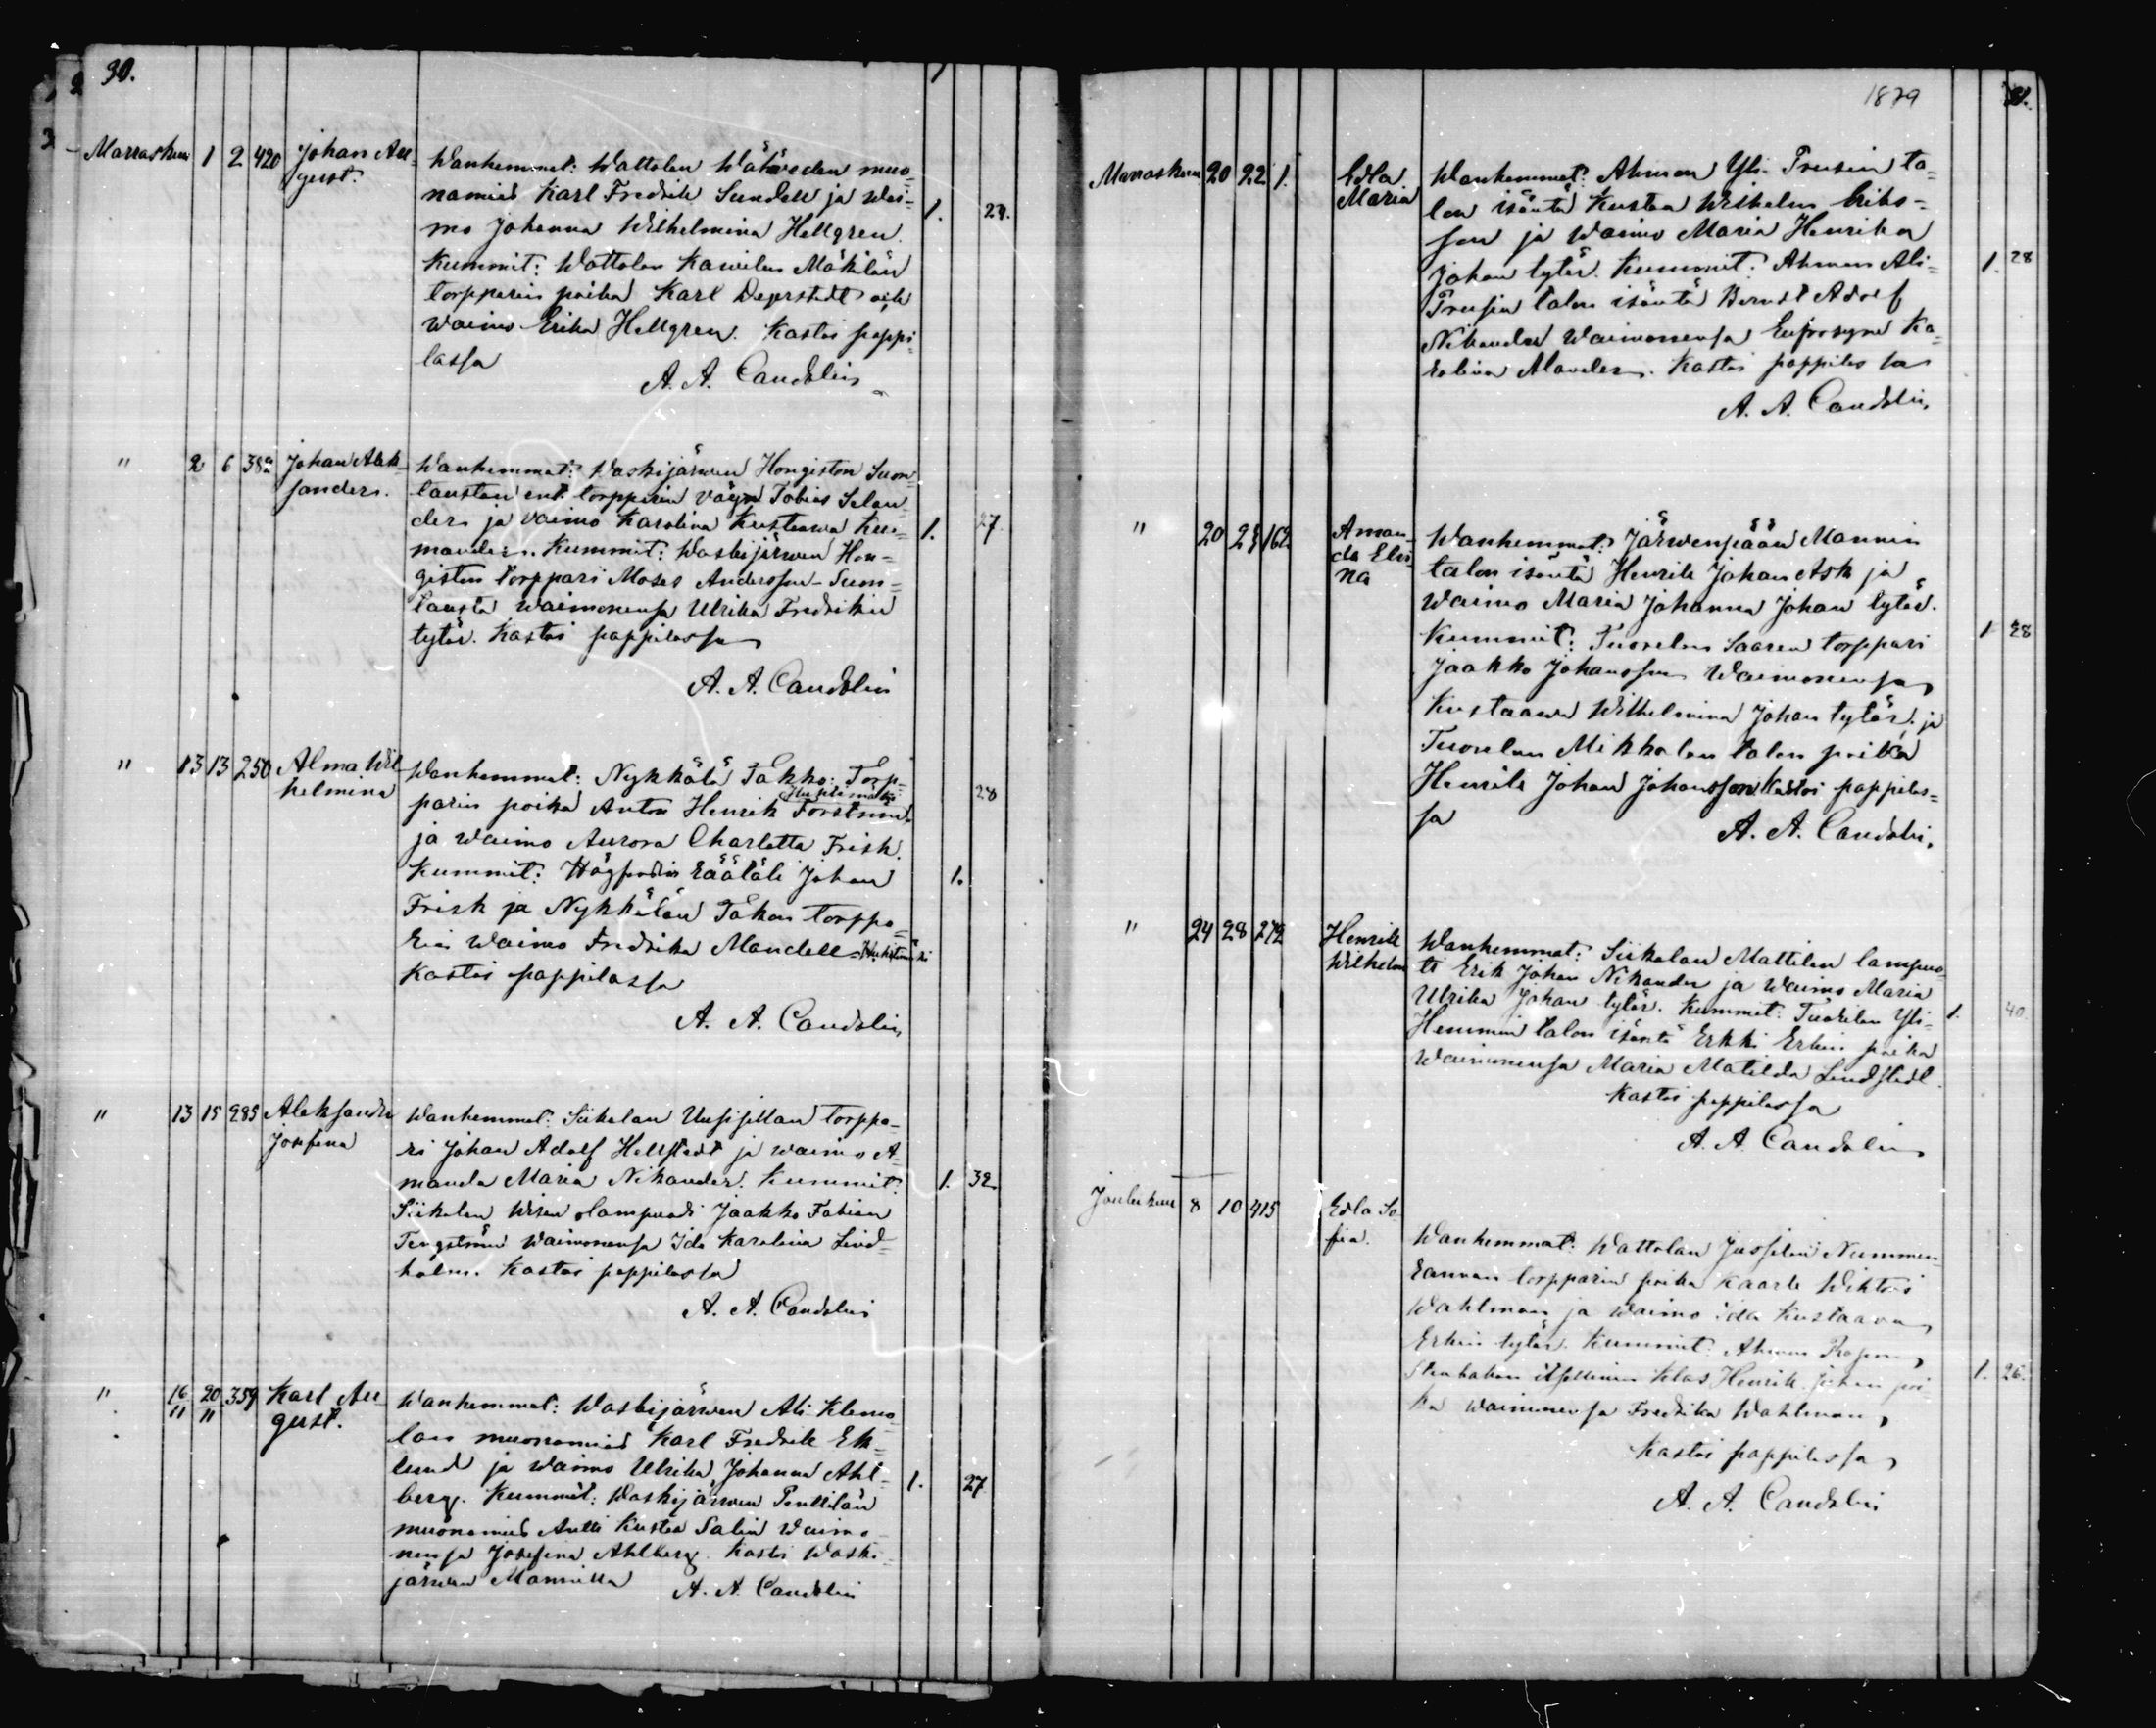 30.
Marraskuu 1 2 420 Johan Au-
gust.
Wanhemmat: Wattolan Wähveden muo-
namies Karl Fredrik Sundell ja wai-
mo Johanna Wilhelmina Hellgren.
Kummit: Wattolan Mäkilän
torpparin poika Karl Degerstedt och
waimo Erika Hellgren. Kastoi pappi-
lassa
1. 27.
A. A. Candolin
" 2 6 382 Johan Alek-
sanders.
Wanhemmat: Waskijärwen Hongiston Suon-
taustan ent. torpparin väyn Tobias Selan-
ders ja vaimo Karolina Kustaawa Kus-
manders. Kummit: Waskijärwen Hon-
giston torppari Moses Andersson Suon-
tausta waimonensa Ulrika Fredrikin
tytär. Kastoi pappilassa
1. 27.
A. A. Candolin
" 13 13 250 Alma Wil-
helmina
Wanhemmat: Nykkälä Takko: Torp-
parin poika Anton Henrik Forstrand
ja waimo Aurora Charlotta Frisk.
Kummit: räätäli Johan
Frisk ja Nykkälän Takon torppa-
rin waimo Fredrika Mandell
Kastoi pappilassa
1. 28
A. A. Candolin
" 13 15 285 Aleksandra
Josefina
Wanhemmat: Siikalan Uusisillan torppa-
ri Johan Adolf Hellstedt ja waimo A-
manda Maria Nikander. Kummit:
Siikalan lampuodi Jaakko Fabian
Tengström waimonensa Ida Karolina Lind-
holm. Kastoi pappilassa
1. 32
A. A. Candolin
" 16 20 359 Karl Au-
" " gust.
Wanhemmat: Waskijärwen Ali Klemo-
lan muonamies Karl Fredrik Ek-
lund ja waimo Ulrika Johanna Ahl-
berg. Kummit: Waskijärwen Penttilän
muonamies Antti Kustaa Salin waimo-
nensa Josefina Ahlberg. Kastoi Waski-
järwen Mannilla
1. 27
A. A. Candolin
1879
31.
Marraskuu 20 22 1. Edla
Maria
Wanhemmat: Ahman Yli-Prusin ta-
lon isäntä Kustaa Wilhelm Eriks-
son ja waimo Maria Henrika
Johan tytär. Kummit: Ahman Ali-
Prusin talon isäntä Berndt Adolf
Nikander waimonensa Eufrosyne Ka-
rolina Mander. Kastoi pappilassa
1. 28
A. A. Candolin
" 20 23 162 Aman-
da Elii-
na
Wanhemmat: Järwenpään Mannin
talon isäntä Henrik Johan Ask ja
waimo Maria Johanna Johan tytär.
Kummit: Tuorlan Saaren torppari
Jaakko Johansson waimonensa
Kustaawa Wilhelmina Johan tytär, ja
Tuorlan Mikkolan talon poika
Henrik Johan Johansson Kastoi pappilas-
sa
1 28
A. A. Candolin.
" 24 28 272 Henrik
Wilhelm
Wanhemmat: Siikalan Mattilan lampuo-
ti Erik Johan Nikander ja waimo Maria
Ulrika Johan tytär. Kummit: Tuorlan Yli-
Hemmin talon isäntä Erkki Erkin poika
waimonensa Maria Matilda Lindstedt.
Kastoi pappilassa
1. 40.
A. A. Candolin
Joulukuu 8 10 415 Edla So-
fia.
Wanhemmat: Wattolan Jussilan Nummen-
rannan torpparin poika Kaarle Wihtori
Wahlman ja waimo Ida Kustaawa
Erkin tytär. Kummit: Ahman
itsellinen Klas Henrik Johan poi-
ka waimonensa Fredrika Wahlman,
Kastoi pappilassa
1. 26.
A. A. Candolin